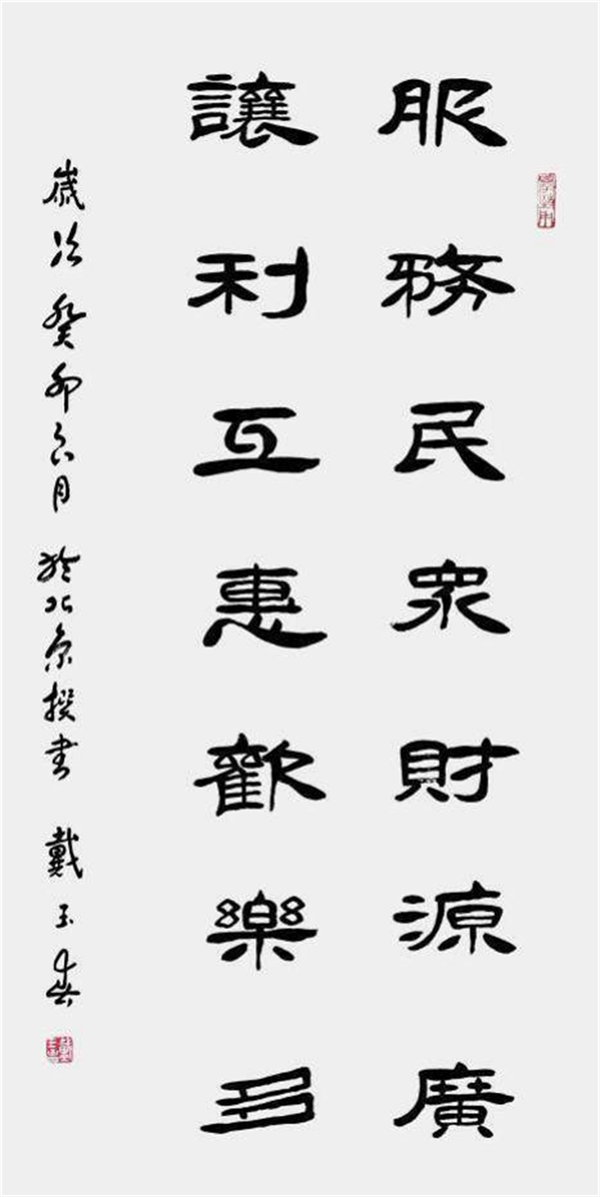 服務民衆財源廣
讓利互惠歡樂多
歲次癸卯六月於北京撰書 戴玉春